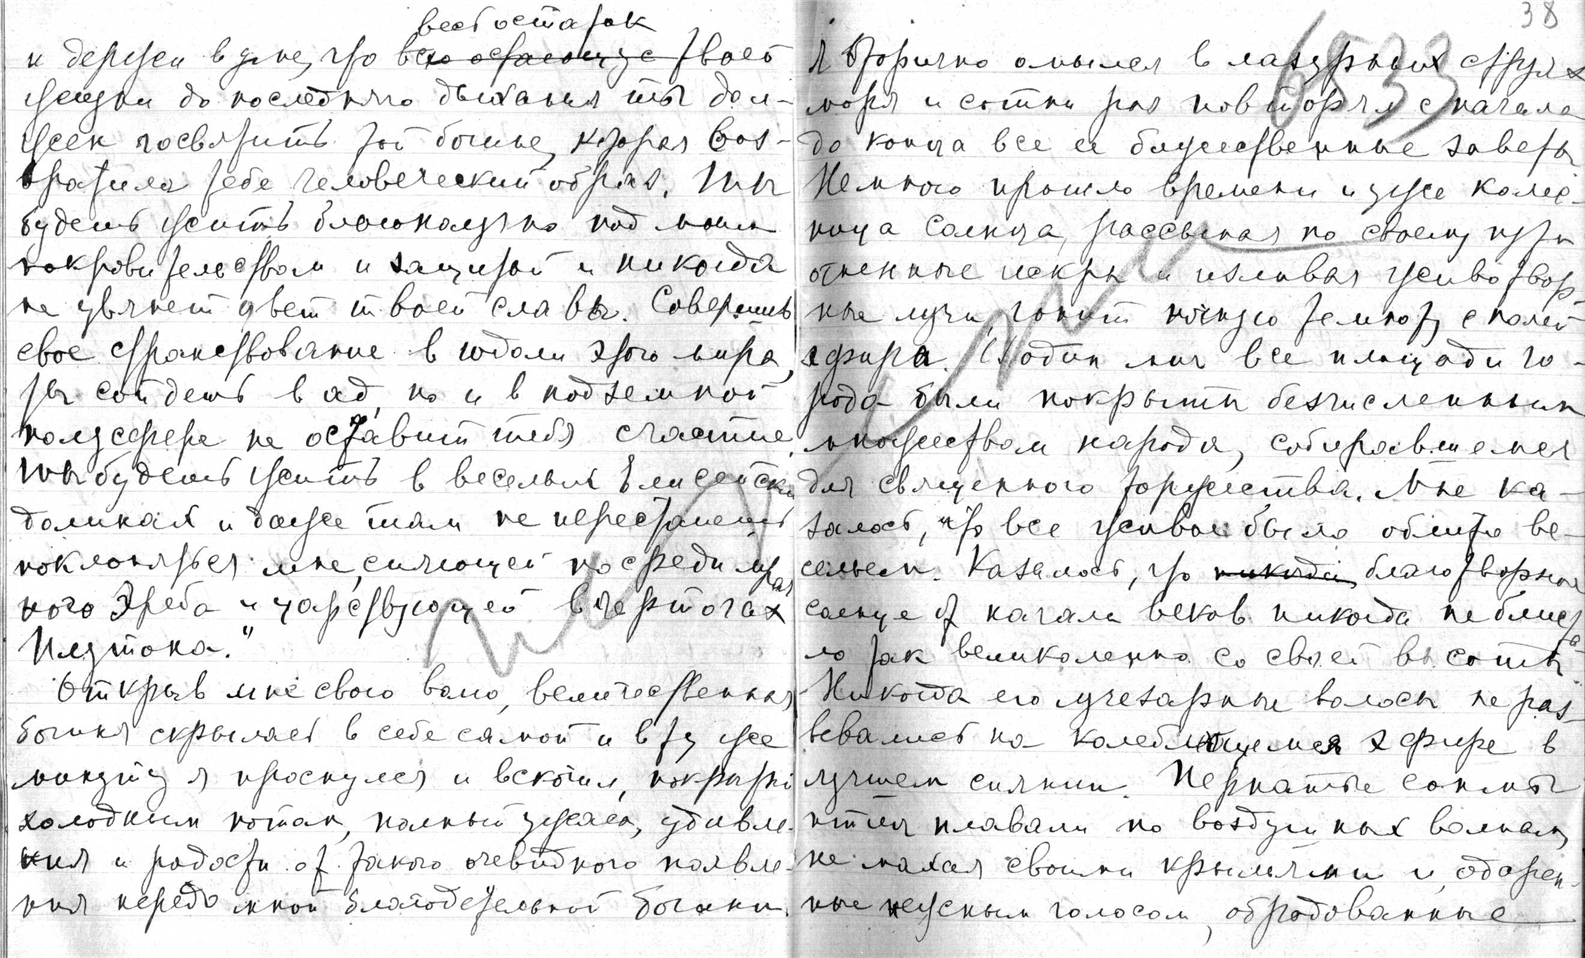 весь остаток
и держи в уме, что всю остающуюся твоей
жизни до последняго дыхания ты дол-
жен посвятить той богине, которая воз-
вратила тебе человеческий образ. Ты
будешь жить благополучно под моим
покровительством и защитой и никогда
не увянет цвет твоей славы. Совершив
свое странствование в юдоли этого мира,
ты сойдешь в ад, но и в подземной
полусфере не оставит тебя счастие.
Ты будешь жить в веселых Елисейски
долинах и даже там не перестанешь
поклоняться мне, сияющей посреди мрач
ного Эреба и царствующей в чертогах
Плутона."
Открыв мне свою волю, величественная
богиня скрылась в себе самой и в ту же
минуту я проснулся и вскочил, покрытый
холодным потом, полный ужаса, удивле-
ния и радости от такого очевидного появле-
ния передо мной благодетельной богини.
38
6533
Я вторично омылся в лазурных струях
моря и сотни раз повторял с начала
до конца все ее божественные заветы
Немного прошло времени и уже колес-
ница Солнца, рассыпая по своему пути
огненные искры и изливая животвор-
ные лучи, гонит ночную темноту с полей
эфира. В один миг все площади го-
рода были покрыты безчисленным
множеством народа, собиравшемся
для священного торжества. Мне ка-
залось, что все живое было облито ве-
сельем. Казалось, что никогда благотворное
солнце от начала веков никогда не блиста-
ло так великолепно со своей высоты
Никогда его лучезарные волосы не раз-
вевались на колеблющемся эфире в
лучшем сиянии. Пернатые сонмы
птиц плавали по воздушных волнам,
не махая своими крыльями и, одарен-
ные нежным голосом, обрадованные